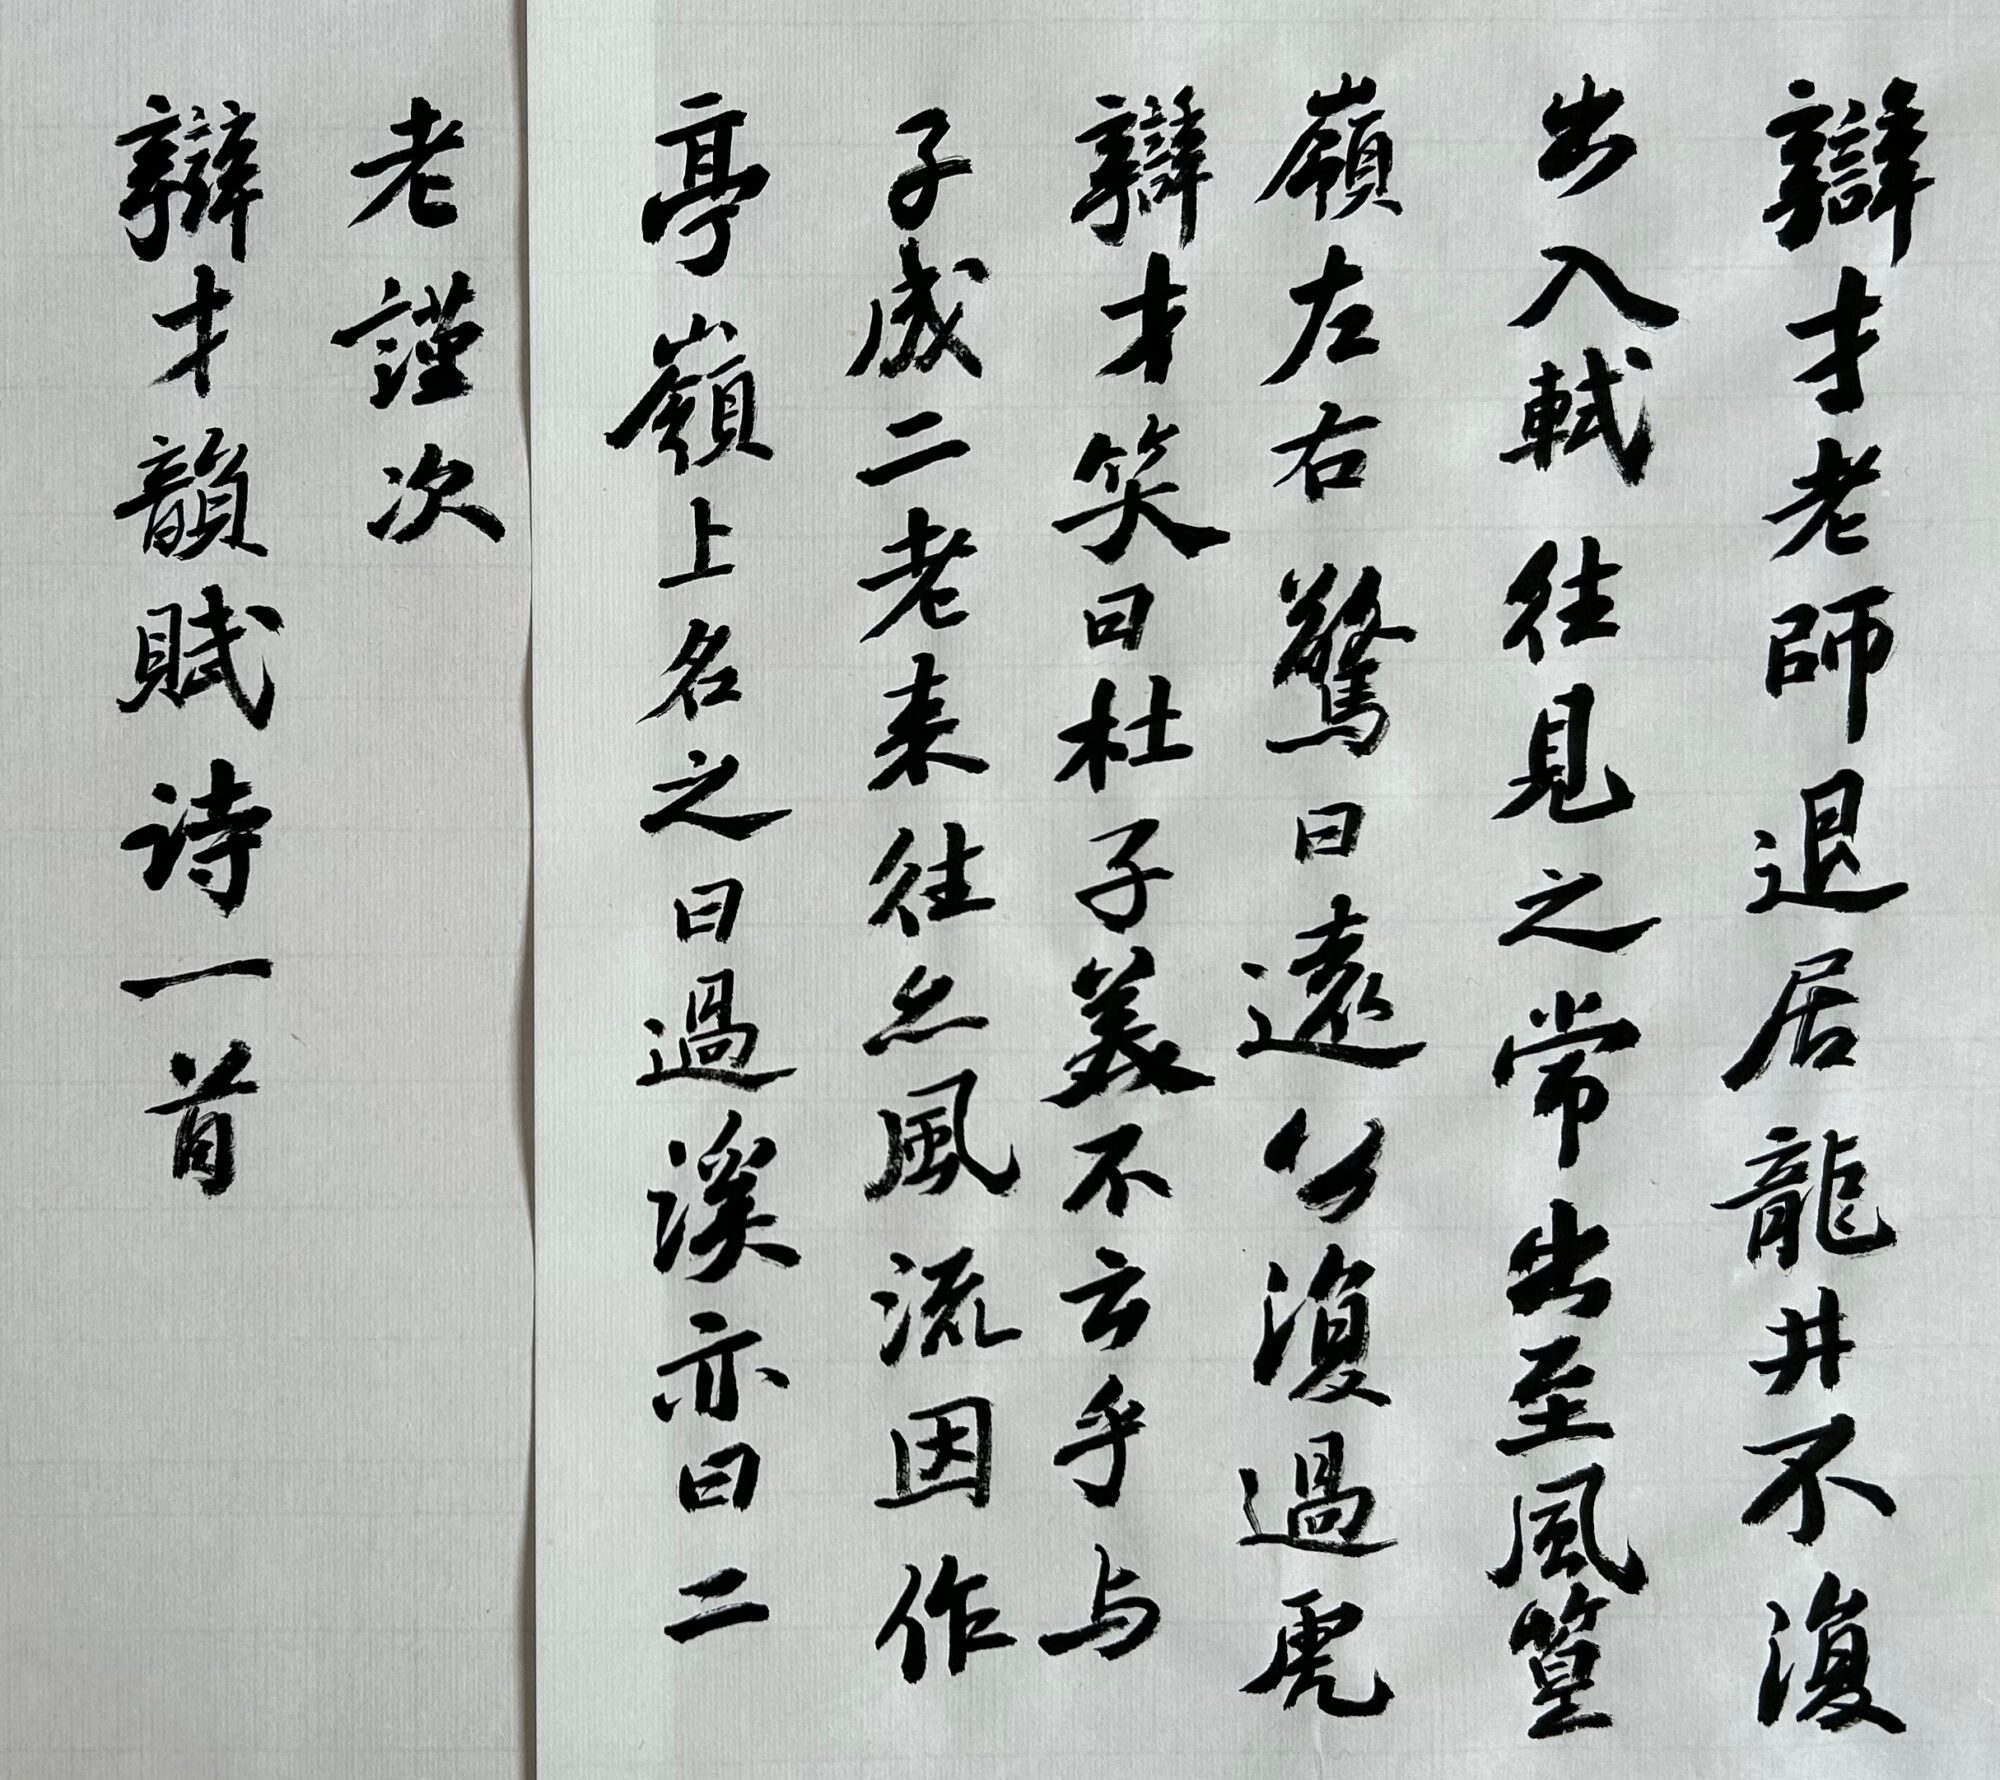 辯才老師退居龍井不復
出入軾往見之常出至風篁
嶺左右驚曰遠公復過虎
辯才笑曰杜子美不云乎与
子成二老来往亦風流因作
亭嶺上名之曰過溪亦曰二
老謹次
辯才韻賦诗一首